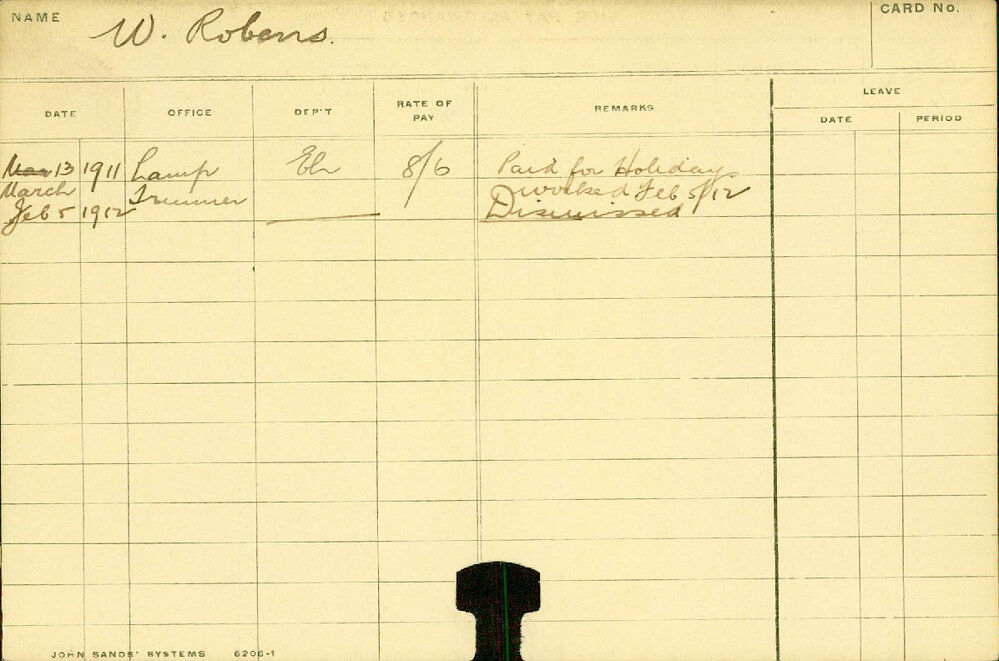 NAME W. Robens. CARD No.
LEAVE
DATE OFFICE DEP'T RATE OF PAY REMARKS DATE PERIOD
13 1911 Lamp El 8/6 Paid for Holidays
March Trimmer worked Feb 5/12
Feb 5 1912 Dismissed
JOHN SANDS' SYSTEMS 6206-1